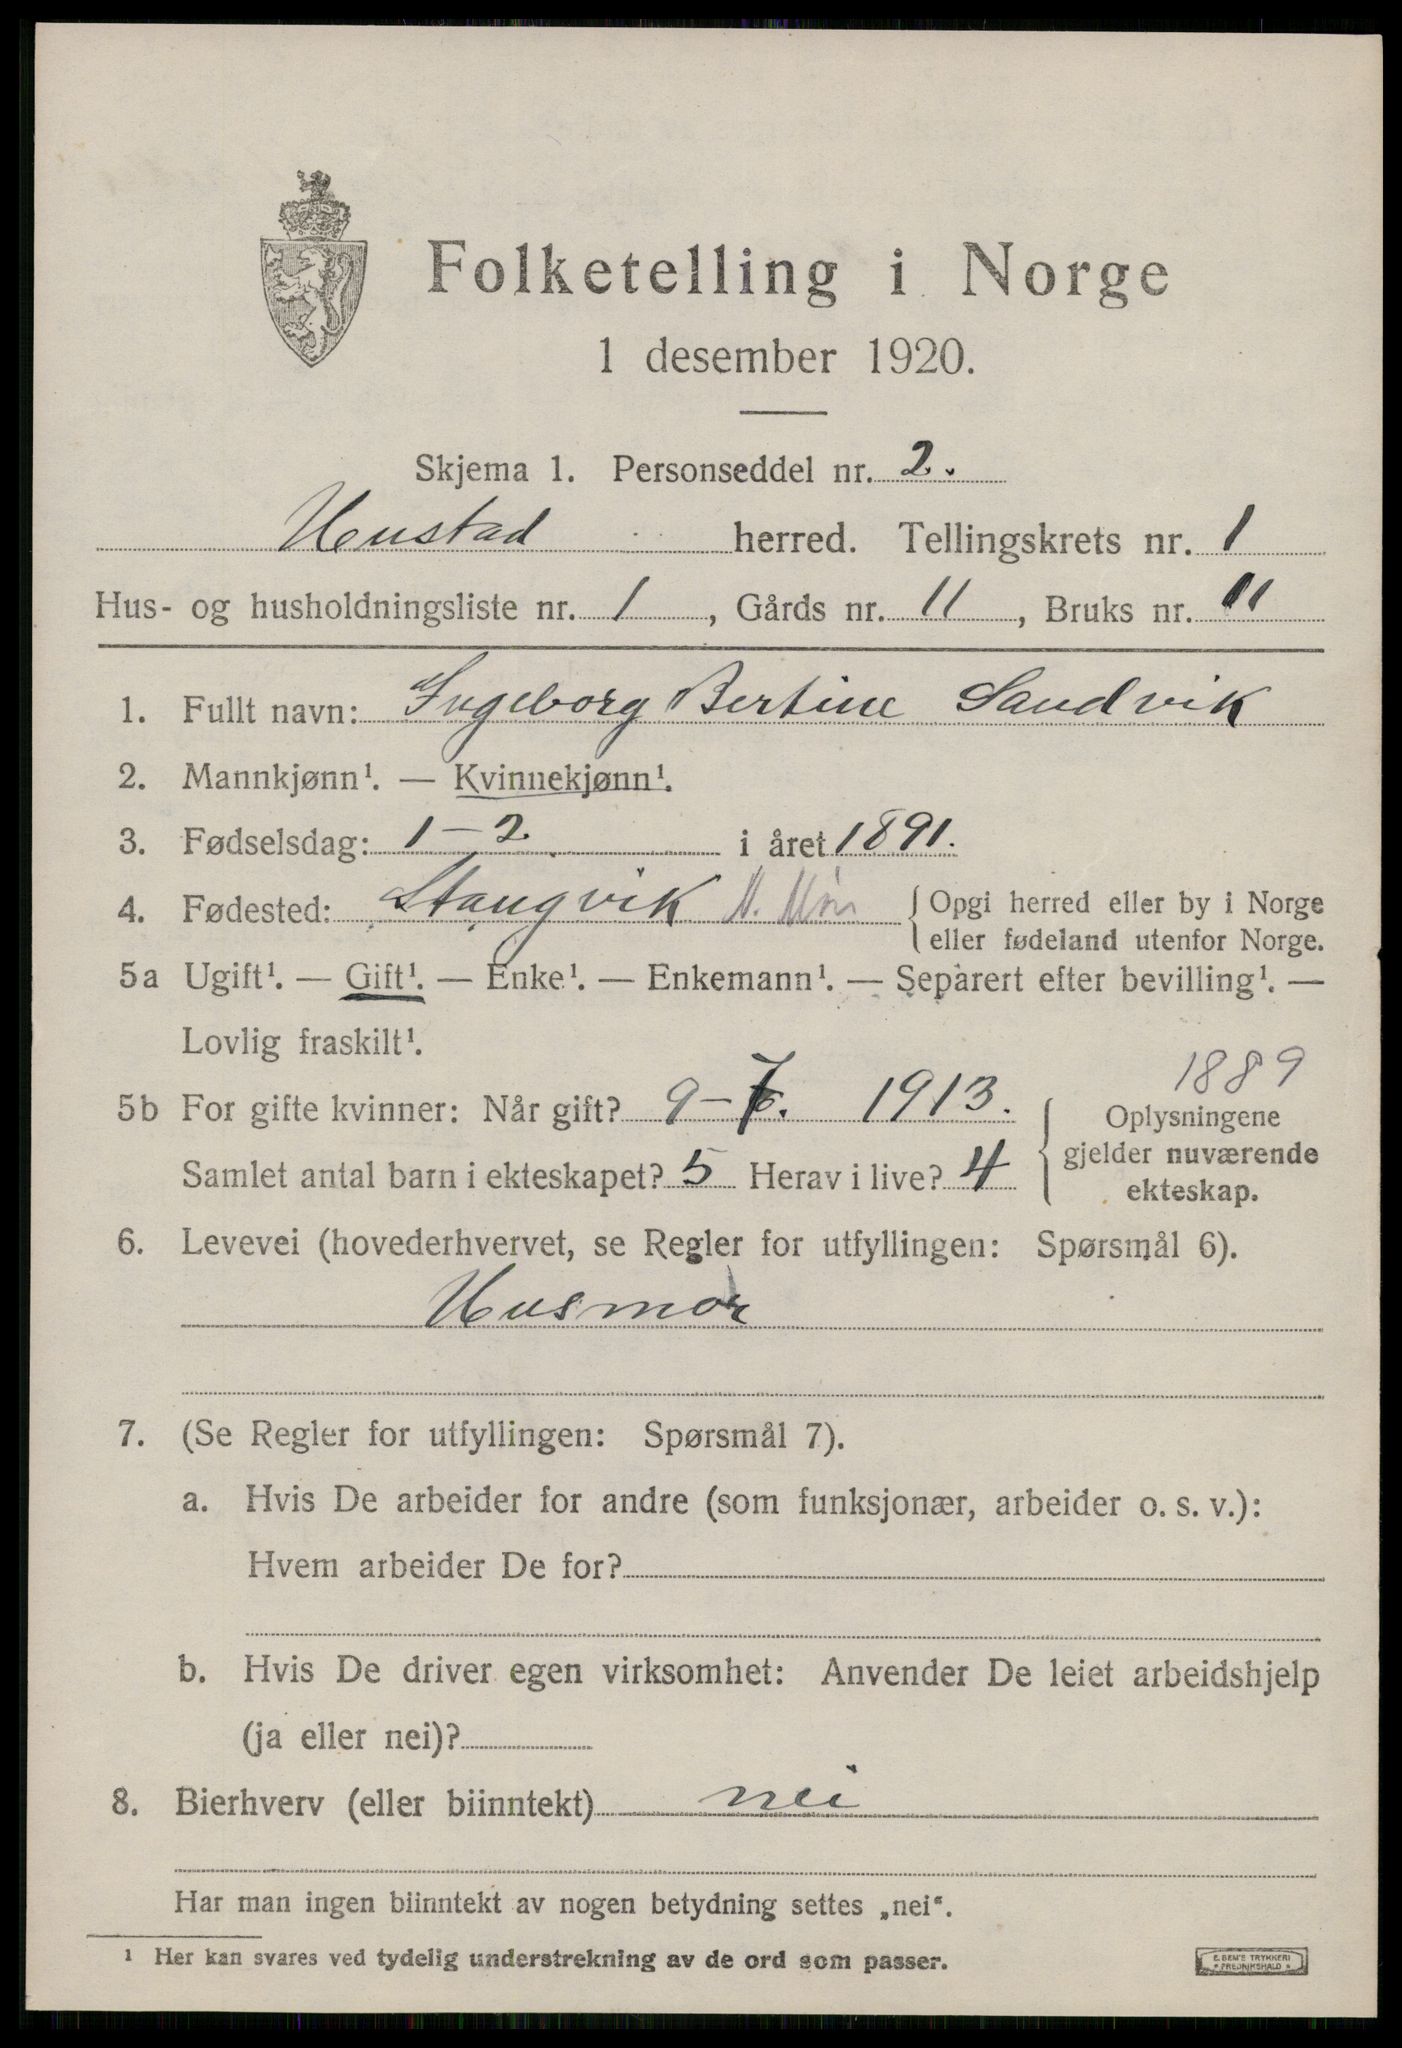 Folketelling i Norge
1 desember 1920.
Skjema 1. Personseddel nr. 2.
Hustad herred. Tellingskrets nr. 1
Hus- og husholdningsliste nr. 1, Gårds nr. 11, Bruks nr. 11
1. Fullt navn: Ingeborg Bertine Sandvik
2. Mannkjønn¹. — Kvinnekjønn¹.
3. Fødselsdag: 1-2 i året 1891.
4. Fødested: Stangvik N. Møre { Opgi herred eller by i Norge
eller fødeland utenfor Norge.
5a Ugift¹. — Gift¹. — Enke¹. — Enkemann¹. — Separert efter bevilling¹. —
Lovlig fraskilt¹.
1889
5b For gifte kvinner: Når gift? 9-7. 1913. { Oplysningene
gjelder nuværende
Samlet antal barn i ekteskapet? 5 Herav i live? 4
ekteskap.
6. Levevei (hovederhvervet, se Regler for utfyllingen: Spørsmål 6).
Husmor
7. (Se Regler for utfyllingen: Spørsmål 7).
a. Hvis De arbeider for andre (som funksjonær, arbeider o. s. v.):
Hvem arbeider De for?
b. Hvis De driver egen virksomhet: Anvender De leiet arbeidshjelp
(ja eller nei)?
8. Bierhverv (eller biinntekt) nei
Har man ingen biinntekt av nogen betydning settes „nei“.
¹ Her kan svares ved tydelig understrekning av de ord som passer.
E. SEM'S TRYKKERI
* FREDRIKSHALD *